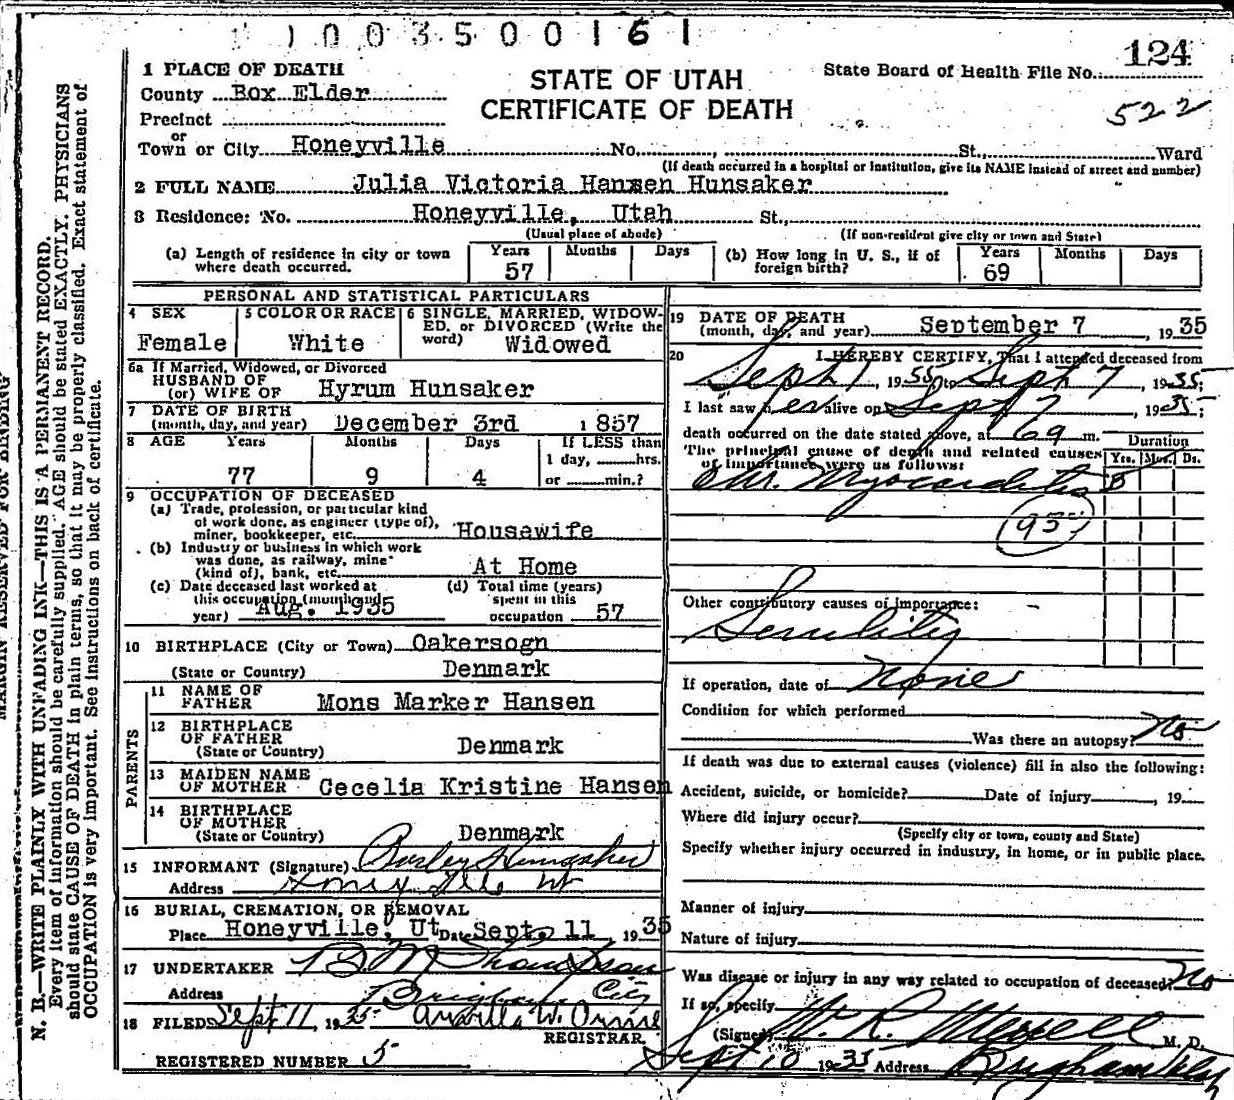 1003500161
124
1 PLACE OF DEATH
STATE OF UTAH
State Board of Health File No.
County Box Elder
CERTIFICATE OF DEATH
522
Precinct
or
Town or City Honeyville No. , St., Ward
(If death occurred in a hospital or institution, give its NAME instead of street and number)
2 FULL NAME Julia Victoria Hansen Hunsaker
3 Residence: No. Honeyville, Utah St.,
(Usual place of abode) (If non-resident give city or town and State)
(a) Length of residence in city or town where death occurred. Years 57 Months Days
(b) How long in U. S., if of foreign birth? Years 69 Months Days
PERSONAL AND STATISTICAL PARTICULARS
4 SEX Female
5 COLOR OR RACE White
6 SINGLE, MARRIED, WIDOWED, or DIVORCED (Write the word) Widowed
6a If Married, Widowed, or Divorced
HUSBAND OF
(or) WIFE OF Hyrum Hunsaker
7 DATE OF BIRTH
(month, day, and year) December 3rd 1857
8 AGE Years Months Days If LESS than
77 9 4 1 day, hrs.
or min.?
9 OCCUPATION OF DECEASED
(a) Trade, profession, or particular kind
of work done, as engineer (type of),
miner, bookkeeper, etc. Housewife
(b) Industry or business in which work
was done, as railway, mine
(kind of), bank, etc. At Home
(c) Date deceased last worked at
this occupation (month and
year) Aug. 1935
(d) Total time (years)
spent in this
occupation 57
10 BIRTHPLACE (City or Town) Oakersogn
(State or Country) Denmark
PARENTS
11 NAME OF
FATHER Mons Marker Hansen
12 BIRTHPLACE
OF FATHER
(State or Country) Denmark
13 MAIDEN NAME
OF MOTHER Cecelia Kristine Hansen
14 BIRTHPLACE
OF MOTHER
(State or Country) Denmark
15 INFORMANT (Signature) Hunsaker
Address Honeyville Ut
16 BURIAL, CREMATION, OR REMOVAL
Place Honeyville, Ut Date Sept. 11, 1935
17 UNDERTAKER
Address Brigham City
18 FILED Sept 11, 1935
REGISTRAR.
REGISTERED NUMBER 5
19 DATE OF DEATH
(month, day, and year) September 7 1935
20 I HEREBY CERTIFY, That I attended deceased from
Sept 1, 1935, to Sept 7, 1935;
I last saw her alive on Sept 7, 1935;
death occurred on the date stated above, at 6 a m.
The principal cause of death and related causes
of importance were as follows:
Duration
Yrs. Mos. Ds.
Chr. Myocarditis
Other contributory causes of importance:
Senility
If operation, date of None
Condition for which performed
Was there an autopsy? No
If death was due to external causes (violence) fill in also the following:
Accident, suicide, or homicide? Date of injury , 19
Where did injury occur?
(Specify city or town, county and State)
Specify whether injury occurred in industry, in home, or in public place.
Manner of injury
Nature of injury
Was disease or injury in any way related to occupation of deceased? No
If so, specify
(Signed) W. R. Merrell M. D.
Sept 10 1935 Address Brigham Utah
MARGIN RESERVED FOR BINDING
N. B.—WRITE PLAINLY WITH UNFADING INK—THIS IS A PERMANENT RECORD.
Every item of information should be carefully supplied. AGE should be stated EXACTLY. PHYSICIANS
should state CAUSE OF DEATH in plain terms, so that it may be properly classified. Exact statement of
OCCUPATION is very important. See instructions on back of certificate.